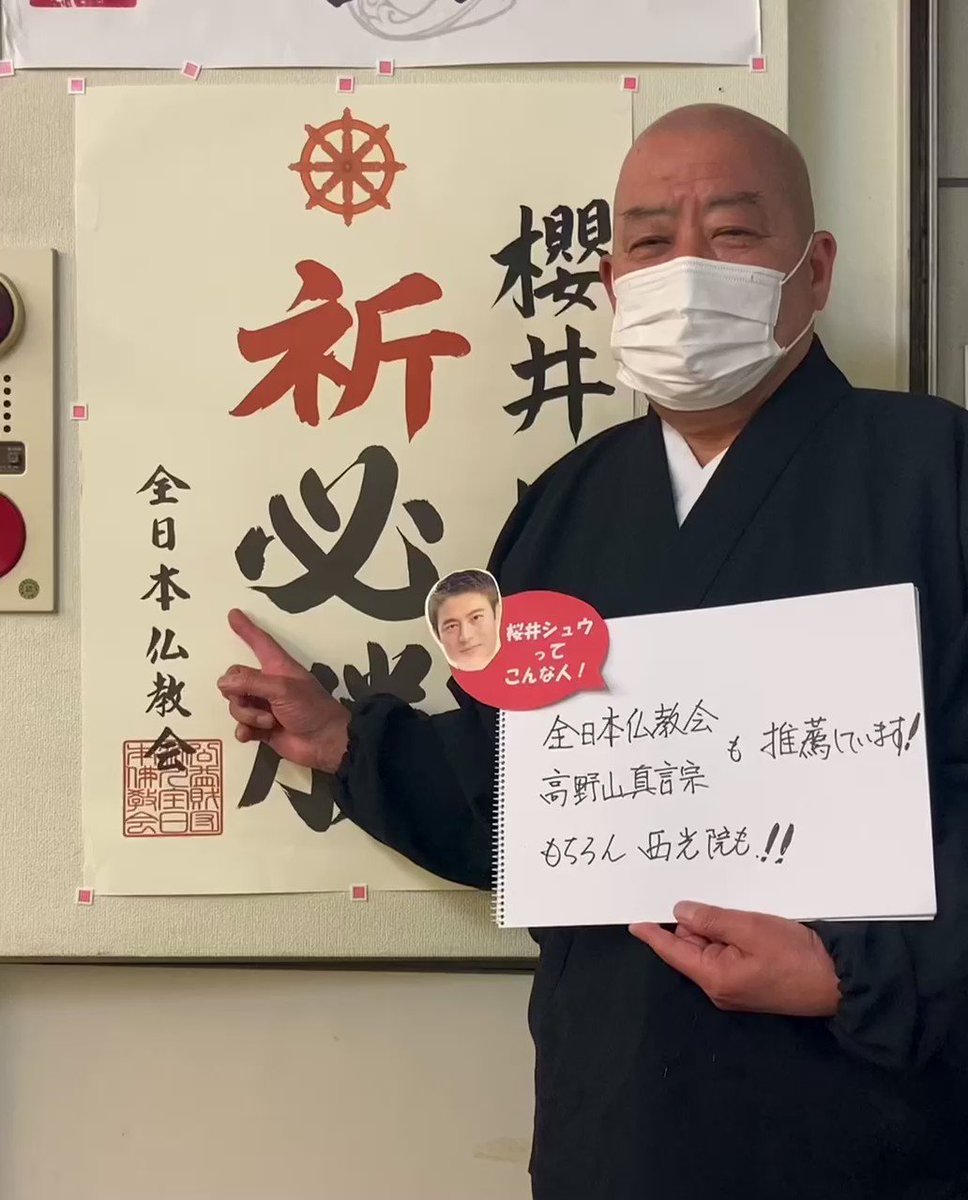 櫻井
祈必勝
全日本仏教会
桜井シュウ
って
こんな人!
全日本仏教会
高野山真言宗
も 推薦しています!
もちろん 西光院も!!